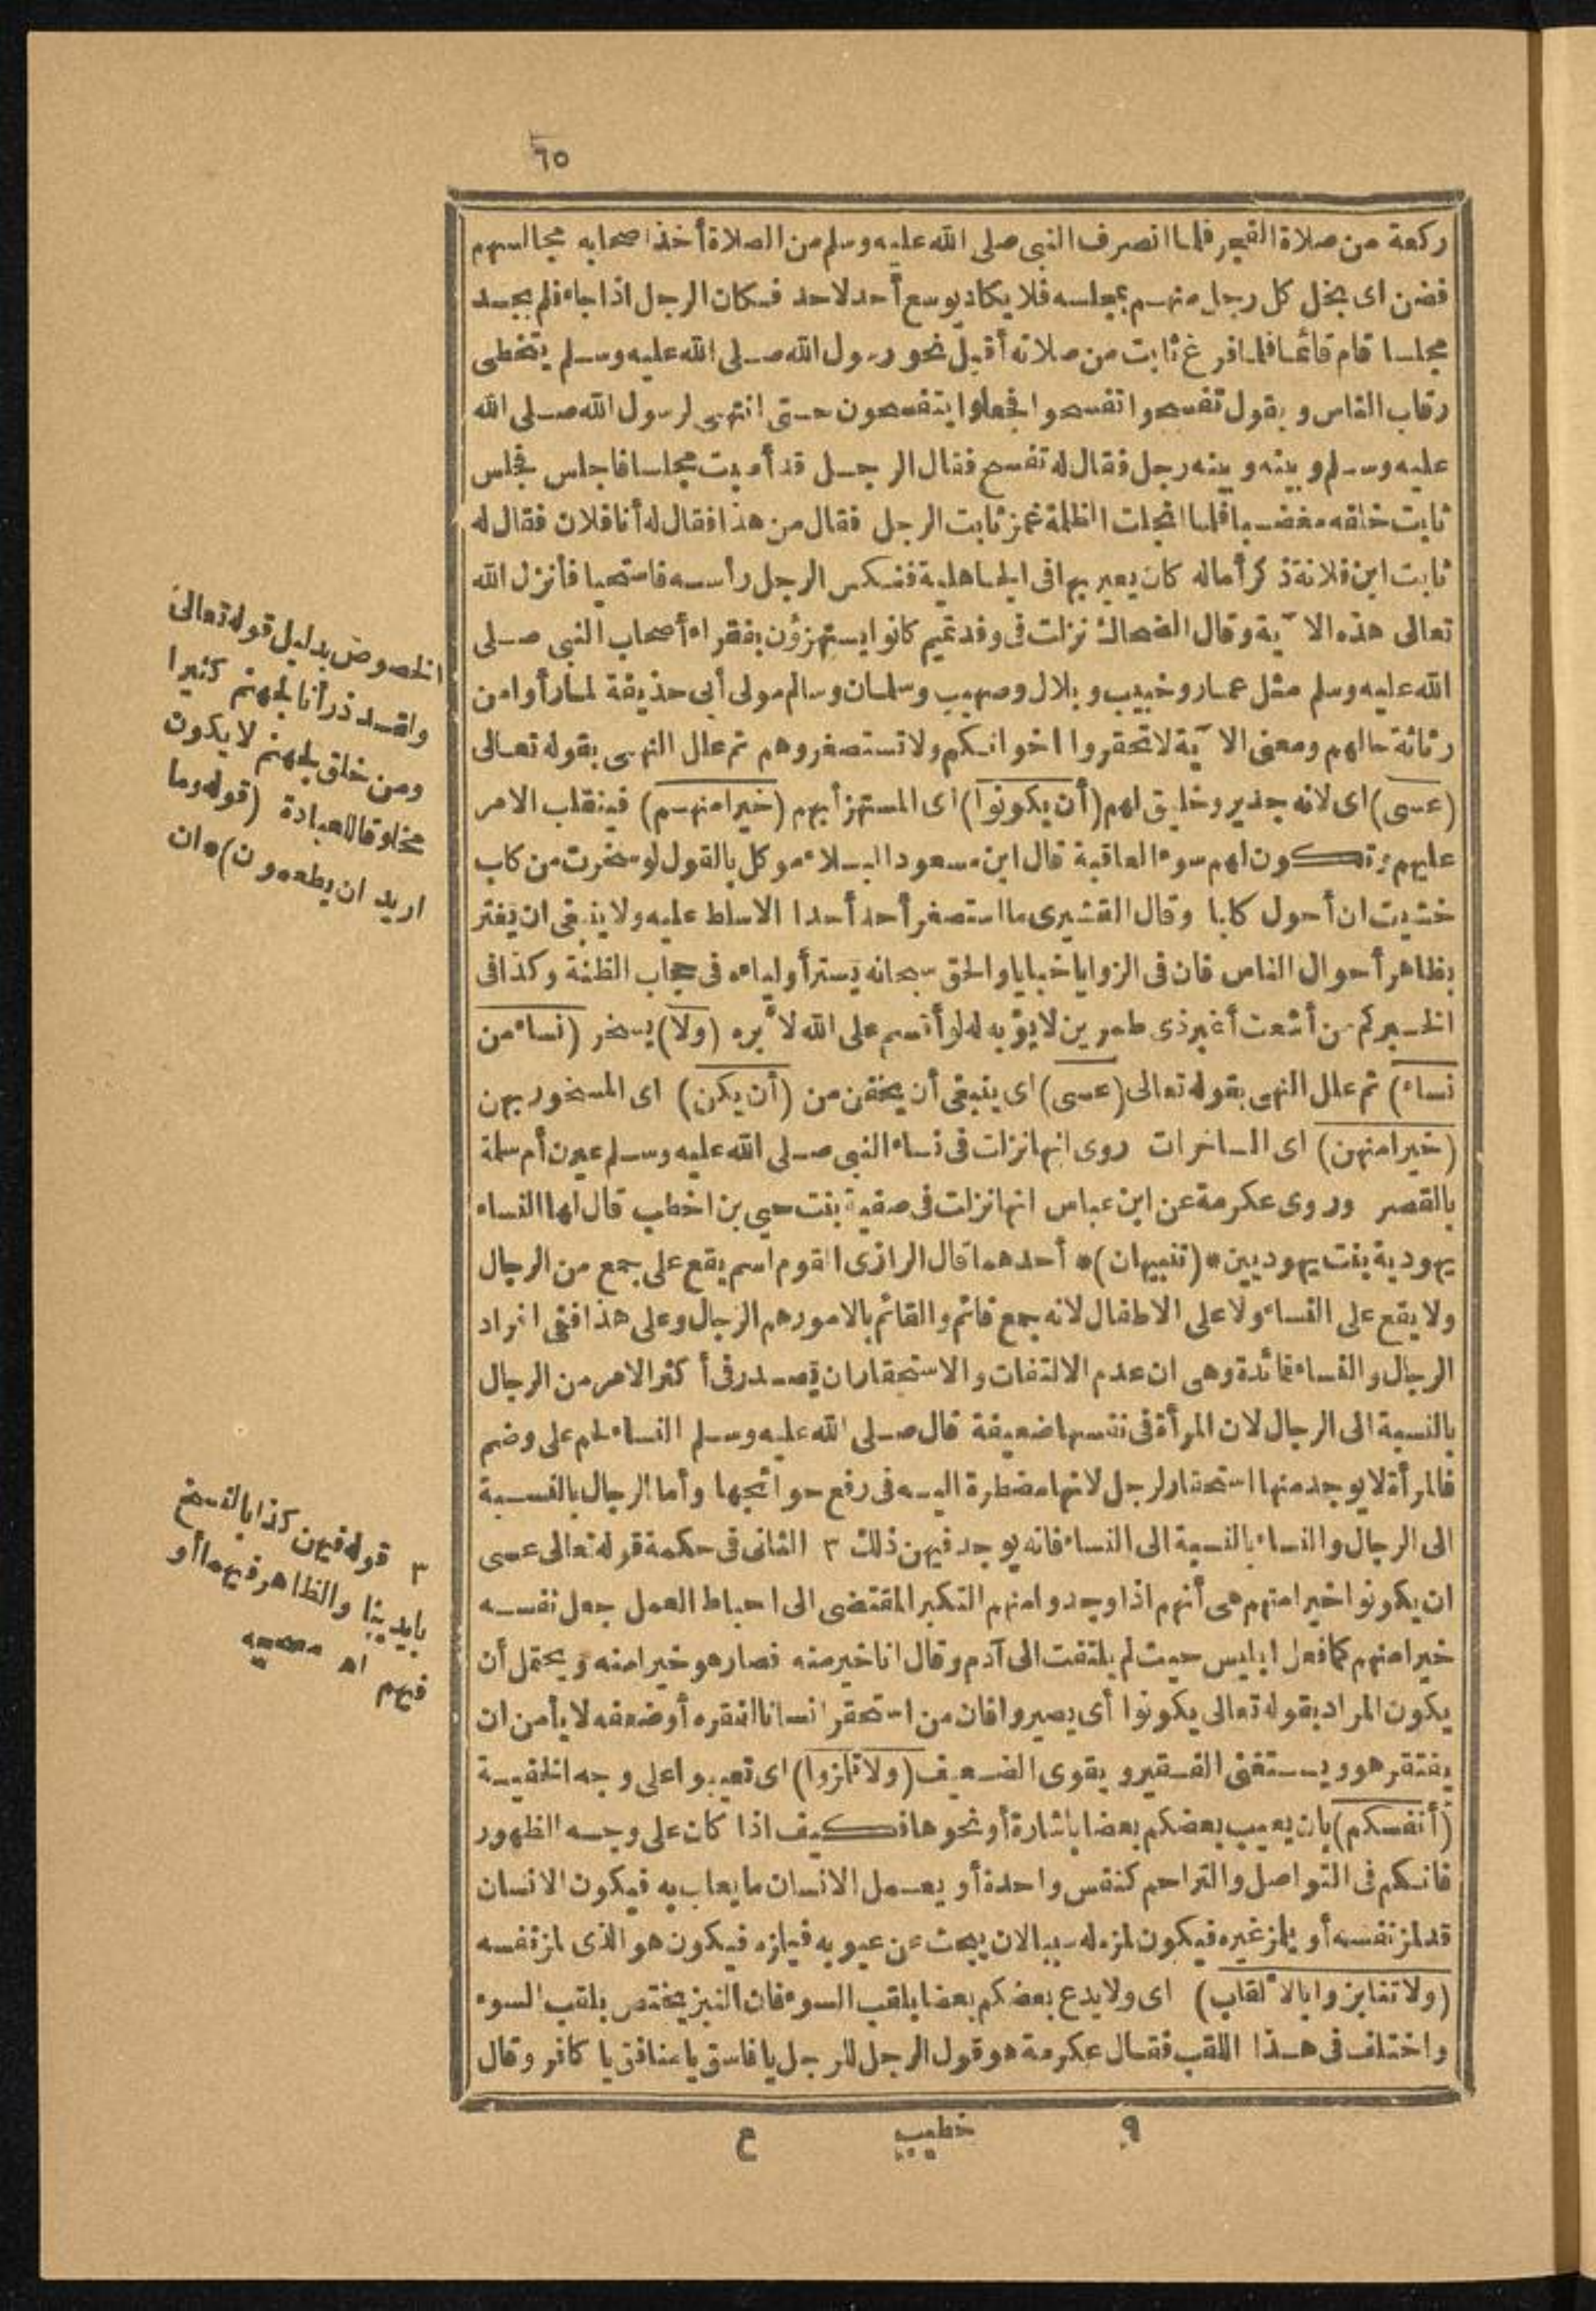 ٦٥
ركعة من صلاة الفجر فلما انصرف النبى صلى الله عليه وسلم من الصلاة أخذ اصحابه مجالسهم
فضن اى بخل كل رجل منهم بمجلسه فلا يكاد يوسع أحد لاحد فكان الرجل اذا جاء فلم يجد
مجلسا قام قائما فلما فرغ ثابت من صلاته أقبل نحو رسول الله صلى الله عليه وسلم يتخطى
رقاب الناس و يقول تفسحوا تفسحوا فجعلوا يتفسحون حتى انتهى لرسول الله صلى الله
عليه وسلم و بينه و بينه رجل فقال له تفسح فقال الرجل قد أصبت مجلسا فاجلس فجلس
ثابت خلفه مغضبا فلما انجلت الظلمة غمز ثابت الرجل فقال من هذا فقال له أنا فلان فقال له
ثابت ابن فلانة ذكر أما له كان يعير بها فى الجاهلية فنكس الرجل رأسه فاستحيا فأنزل الله
تعالى هذه الآية وقال الضحاك نزلت فى وفد تميم كانوا يستهزؤن بفقراء أصحاب النبى صلى
الله عليه وسلم مثل عمار وخبيب و بلال وصهيب وسلمان وسالم مولى أبى حذيفة لما رأوا من
رثاثة حالهم ومعنى الآية لا تحقروا اخوانكم ولا تستصغروهم ثم علل النهى بقوله تعالى
(عسى) اى لانه جدير وخليق لهم (أن يكونوا) اى المستهزأ بهم (خيرا منهم) فينقلب الامر
عليهم وتكون لهم سوء العاقبة قال ابن مسعود البلاء موكل بالقول لو سخرت من كلب
خشيت ان أحول كلبا وقال القشيرى ما استصغر أحد أحدا الا سلط عليه ولا ينبغى ان يغتر
بظاهر أحوال الناس فان فى الزوايا خبايا والحق سبحانه يستر أولياءه فى حجاب الظنة وكذا فى
الخبر كم من أشعث أغبر ذى طمرين لا يؤبه له لو أقسم على الله لأبره (ولا) يسخر (نساء من
نساء) ثم علل النهى بقوله تعالى (عسى) اى ينبغى أن يخفن من (أن يكن) اى المسخور بهن
(خيرا منهن) اى الساخرات روى انها نزلت فى نساء النبى صلى الله عليه وسلم عيرن أم سلمة
بالقصر وروى عكرمة عن ابن عباس انها نزلت فى صفية بنت حيى بن اخطب قال لها النساء
يهودية بنت يهوديين * (تنبيهان) * أحدهما قال الرازى القوم اسم يقع على جمع من الرجال
ولا يقع على النساء ولا على الاطفال لانه جمع قائم والقائم بالامور هم الرجال وعلى هذا ففى افراد
الرجال والنساء فائدة وهى ان عدم الالتفات والاستحقار ان يصدر فى أكثر الامر من الرجال
بالنسبة الى الرجال لان المرأة فى نفسها ضعيفة قال صلى الله عليه وسلم النساء لحم على وضم
فالمرأة لا يوجد منها استحقار لرجل لانها مضطرة اليه فى رفع حوائجها وأما الرجال بالنسبة
الى الرجال والنساء بالنسبة الى النساء فانه يوجد فيهن ذلك ٣ الثانى فى حكمة قوله تعالى عسى
ان يكونوا خيرا منهم هى أنهم اذا وجدوا منهم التكبر المقتضى الى احباط العمل جعل نفسه
خيرا منهم كما فعل ابليس حيث لم يلتفت الى آدم وقال انا خير منه فصار هو خيرا منه و يحتمل أن
يكون المراد بقوله تعالى يكونوا أى يصيروا فان من استحقر انسانا لفقره أو ضعفه لا يأمن ان
يفتقر هو ويستغنى الفقير و يقوى الضعيف (ولا تلمزوا) اى تعيبوا على وجه الخفية
(أنفسكم) بان يعيب بعضكم بعضا باشارة أو نحوها فكيف اذا كان على وجه الظهور
فانكم فى التواصل والتراحم كنفس واحدة أو يعمل الانسان ما يعاب به فيكون الانسان
قد لمز نفسه أو يلمز غيره فيكون لمزه له سببا لان يبحث عن عيوبه فيلمزه فيكون هو الذى لمز نفسه
(ولا تنابزوا بالألقاب) اى ولا يدع بعضكم بعضا بلقب السوء فان النبز يختص بلقب السوء
واختلف فى هذا اللقب فقال عكرمة هو قول الرجل للرجل يا فاسق يا منافق يا كافر وقال
٩ خطيب ع
الخصوص بدليل قوله تعالى
ولقد ذرأنا لجهنم كثيرا
ومن خلق لجهنم لا يكون
مخلوقا للعبادة (قوله وما
اريد ان يطعمون) * ان
٣ قوله فيهن كذا بالنسخ
بايدينا والظاهر فيهما أو
فيهم اه مصححه